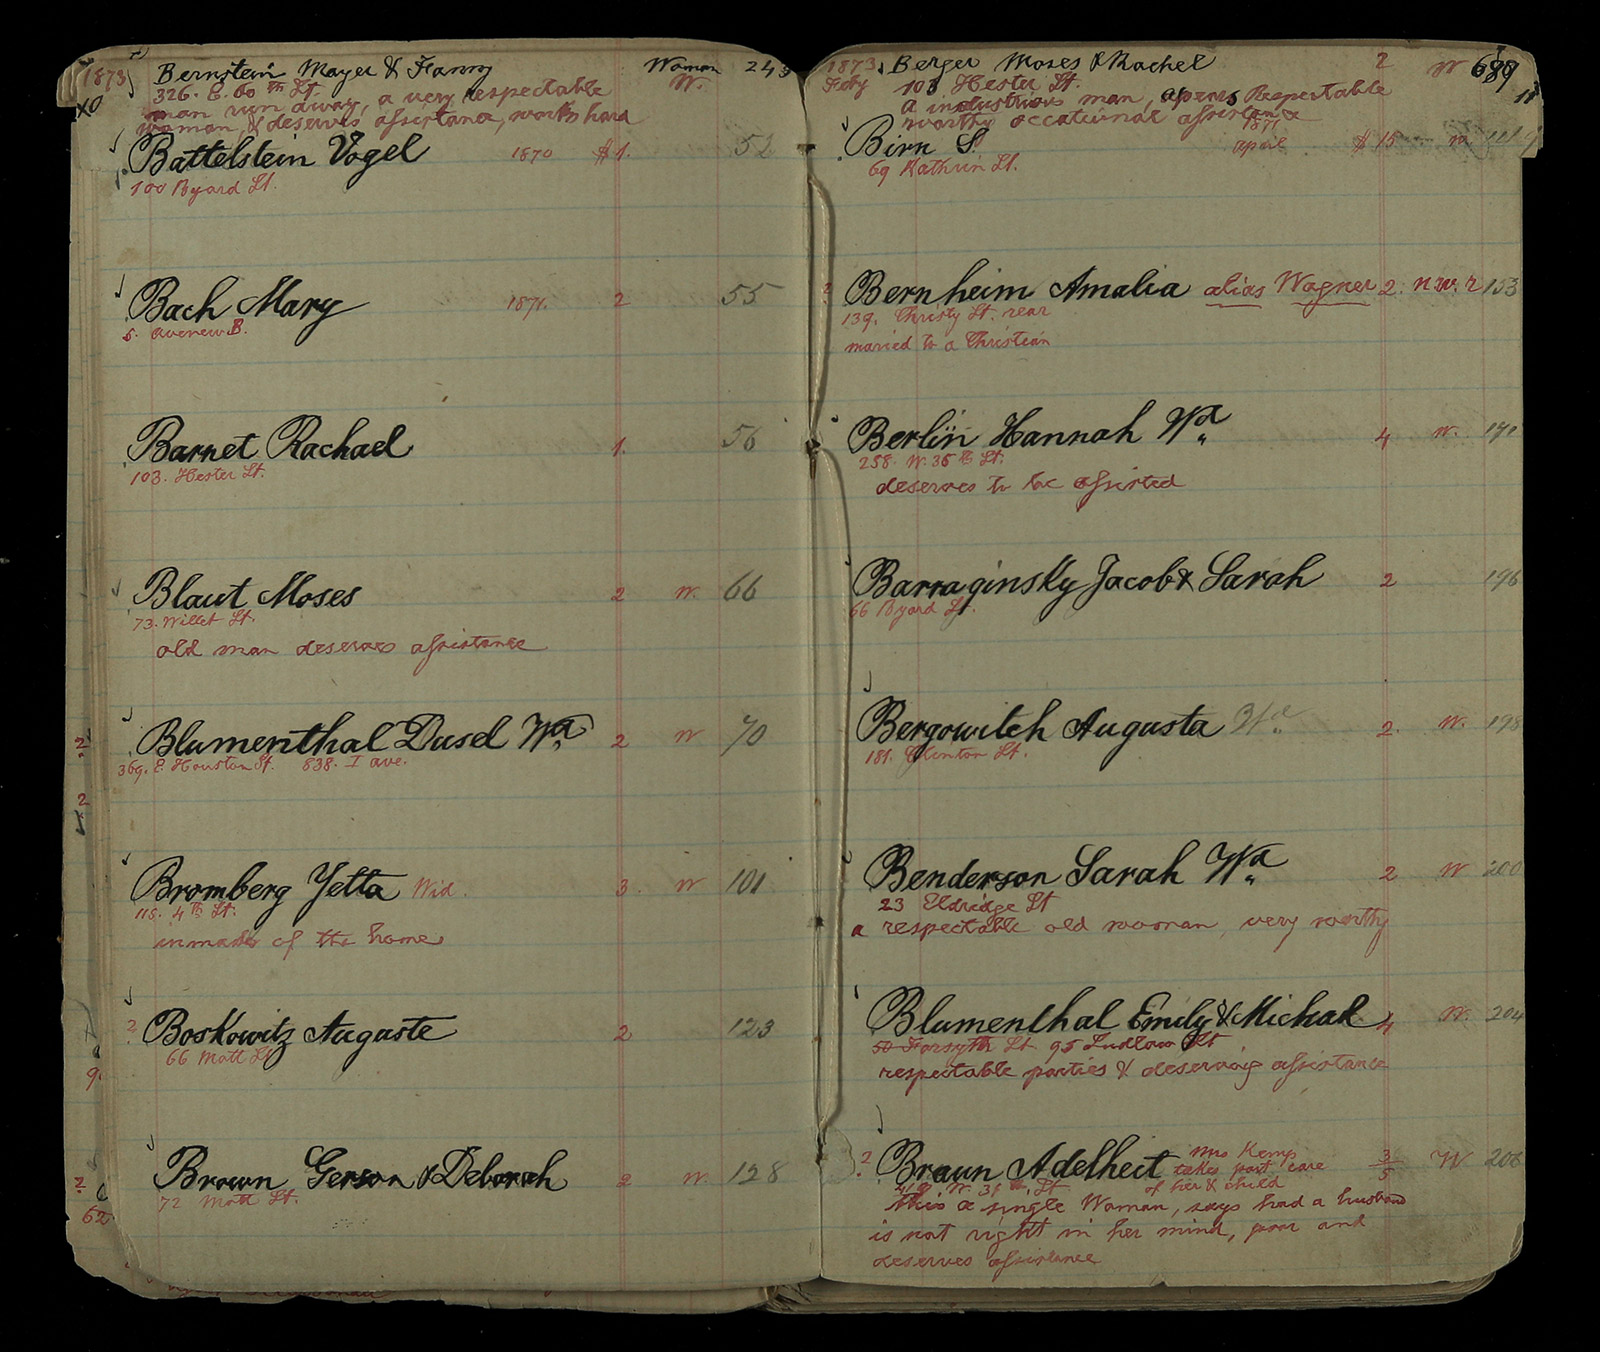 1873 Bernstein Mayer & Fanny Woman 243
326. E. 60th St. W.
man run away, a very respectable
woman, & deserves assistance, works hard
XO
Battelstein Vogel 1870 $1. 52
100 Byard St.
Bach Mary 1871. 2 55
5. avenew B.
Barnet Rachael 1. 56
103. Hester St.
Blaut Moses 2 W. 66
73. Willet St.
old man deserves assistance
2 Blumenthal Dusel Wd. 2 W 70
369. E. Houston St. 838. I ave.
2
Bromberg Yetta Wid. 3. W 101
115. 4th St.
inmades of the home
? Boskowitz Auguste 2 123
66 Mott St
9.
2 Brown Gerson & Deborah 2 W. 128
72 Mott St.
62
1873 Berger Moses & Rachel 2 W 689
Feby 103 Hester St. 11
a industrious man, apears Respectable
worthy occational assistance
Birn S. 1871 april $15 W.
69 Kathrin St.
? Bernheim Amalia alias Wagner 2. n.w. r 153
139. Christy St. rear
maried to a Christian
Berlin Hannah Wd. 4 W. 171
258. W. 35th St.
deserves to be assisted
Barraginsky Jacob & Sarah 2 196
66 Byard St.
Bergowitch Augusta Wd. 2. W. 198
181. Clinton St.
Benderson Sarah Wd. 2 W 200
23 Eldridge St
a respectable old woman, very worthy
Blumenthal Emily & Michak 4 W. 204
50 Forsyth St. 95 Ludlow St
respectable parties & deserving assistance
3 ? Braun Adelheit Mrs Kemp 3/5 W 206
takes part care
of her & child
W. 31th. St.
this a single Woman, says had a husband
is not right in her mind, poor and
deserves assistance